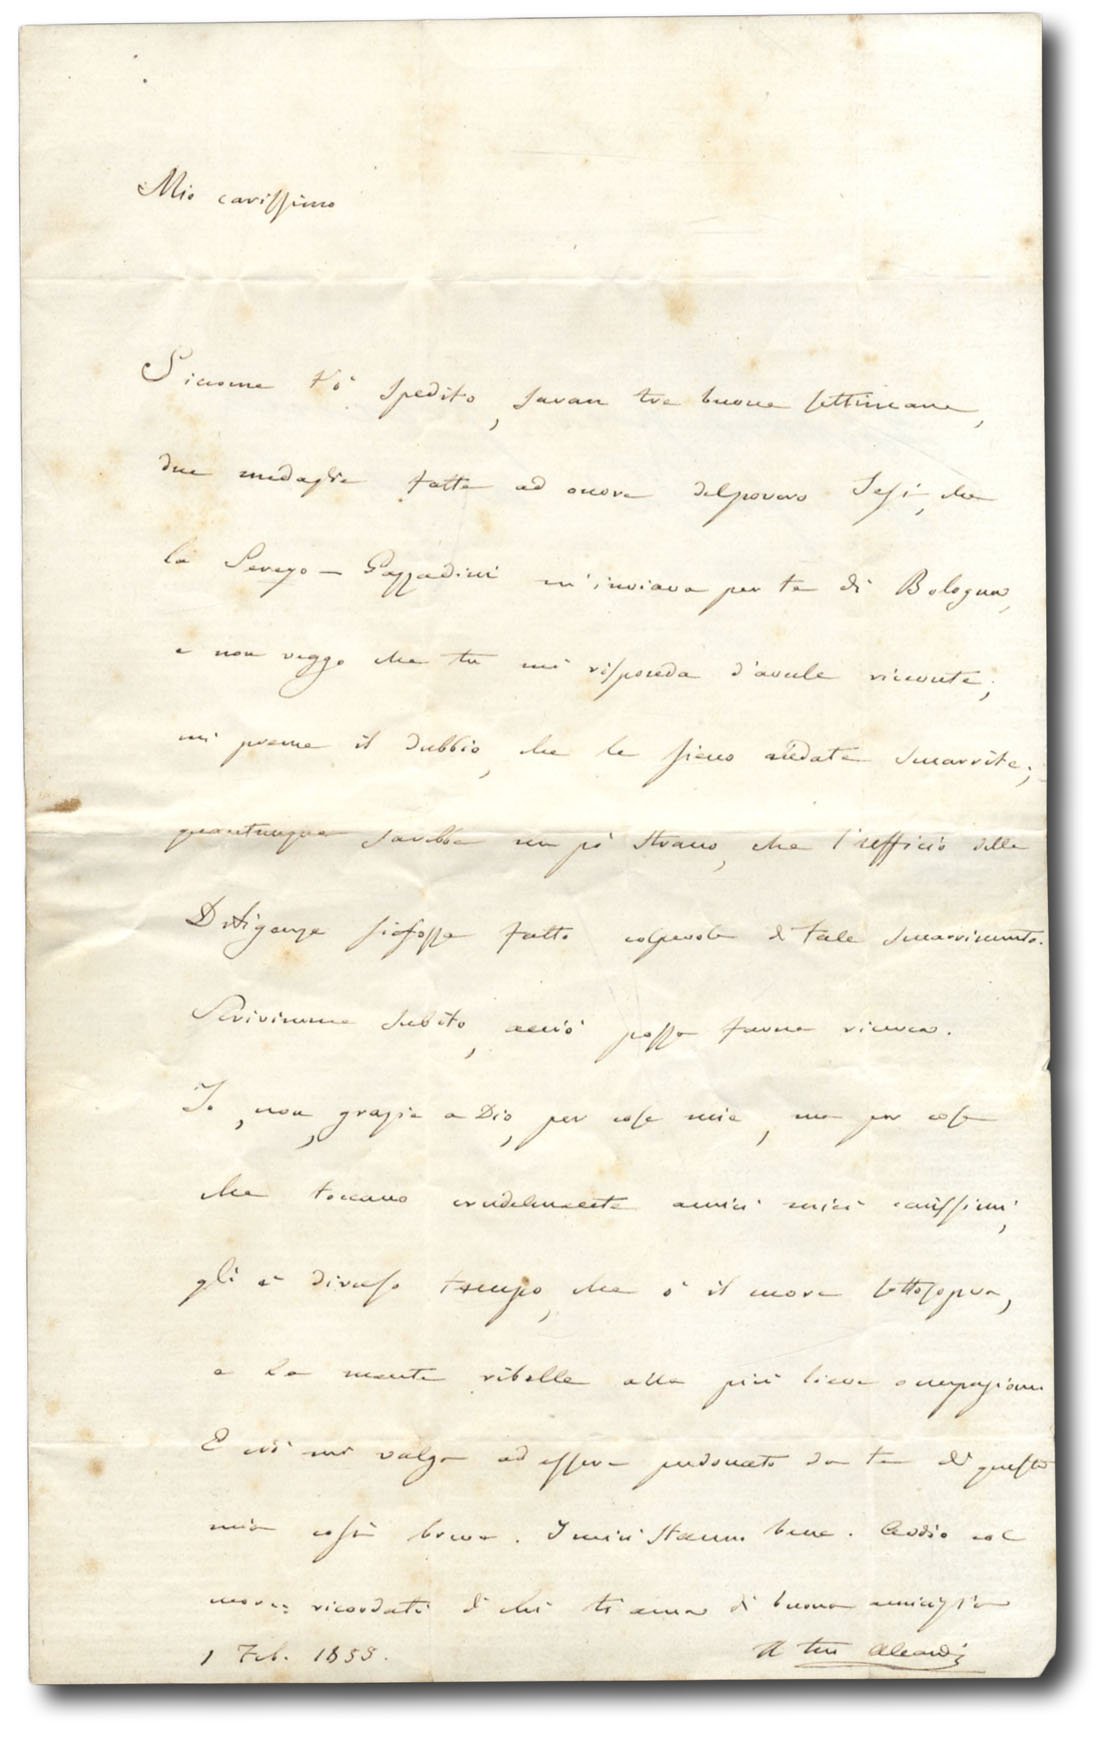 Mio carissimo
Siccome t'ò spedito, saran tre buone settimane,
due medaglie fatte ad onore del povero Jesi, che
la Serego-Gozzadini m'inviava per te di Bologna,
e non veggo che tu mi risponda d'averle ricevute;
mi preme il dubbio, che le sieno andate smarrite;
quantunque sarebbe un pò strano, che l'ufficio delle
Diligenze si fosse fatto colpevole di tale smarrimento.
Scrivimene subito, acciò possa farne ricerca.
Io, non, grazie a Dio, per cose mie, ma per cose
che toccano crudelmente amici miei carissimi,
gli è diverso tempo, che ò il core sottosopra,
e la mente ribelle alla più lieve occupazione.
E ciò mi valga ad essere perdonato da te di questa
mia così breve. I miei stanno bene. Addio col
core: ricordati di chi ti ama di buona amicizia
1 Feb. 1855. Il tuo Aleardi